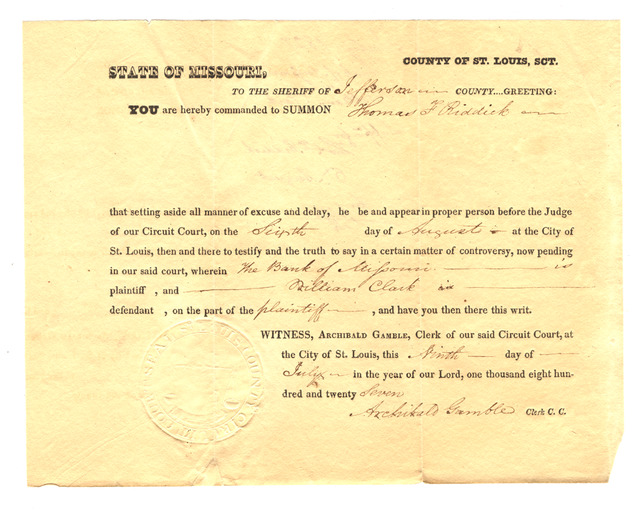 COUNTY OF ST. LOUIS, SCT.
STATE OF MISSOURI,
TO THE SHERIFF OF Jefferson COUNTY....GREETING:
YOU are hereby commanded to SUMMON Thomas F Riddick
that setting aside all manner of excuse and delay, he be and appear in proper person before the Judge
of our Circuit Court, on the Sixth day of August at the City of
St. Louis, then and there to testify and the truth to say in a certain matter of controversy, now pending
in our said court, wherein The Bank of Missouri is
plaintiff , and William Clark is
defendant , on the part of the plaintiff , and have you then there this writ.
WITNESS, ARCHIBALD GAMBLE, Clerk of our said Circuit Court, at
the City of St. Louis, this Ninth day of
July in the year of our Lord, one thousand eight hun-
dred and twenty Seven
Archibald Gamble Clerk C. C.